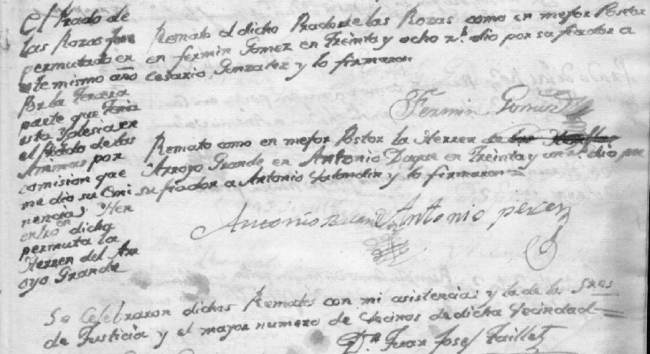 El Prado de
las Rozas fue
permutado en
este mismo año
por la Tercera
parte que tenia
esta Yglesia en
el Prado de las
Animas por
comision que
me dio su Emi
nencia; Y en
dicha
permuta la
Herren del Arr
oyo Grande
Remató el dicho Prado de las Rozas como en mejor Postor
en fermin Gomez en Treinta y ocho rs. dio por su fiador a
Cesario Gonzalez y lo firmaron
Fermin Gomez
Remato como en mejor Postor la Herren
Arroyo Grande en Antonio Duque en Treinta y un rs. dio por
su fiador a Antonio y lo firmaron=
Antonio Duque Antonio perez
Se celebraron dichos Remates con mi asistencia, y la de los Sres
de Justicia y el mayor numero de Vecinos de dicha Vecindad=
Dn. Juan Josef Taillet